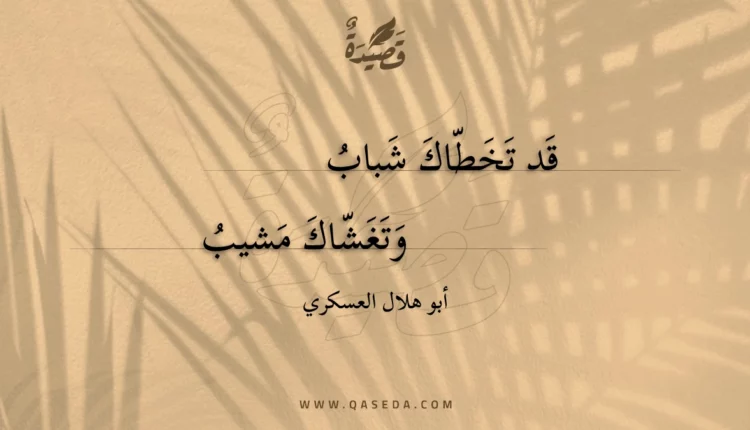 قَصِيْدَةٌ
قَد تَخَطّاكَ شَبابُ
وَتَغَشّاكَ مَشيبُ
أبو هلال العسكري
WWW.QASEDA.COM